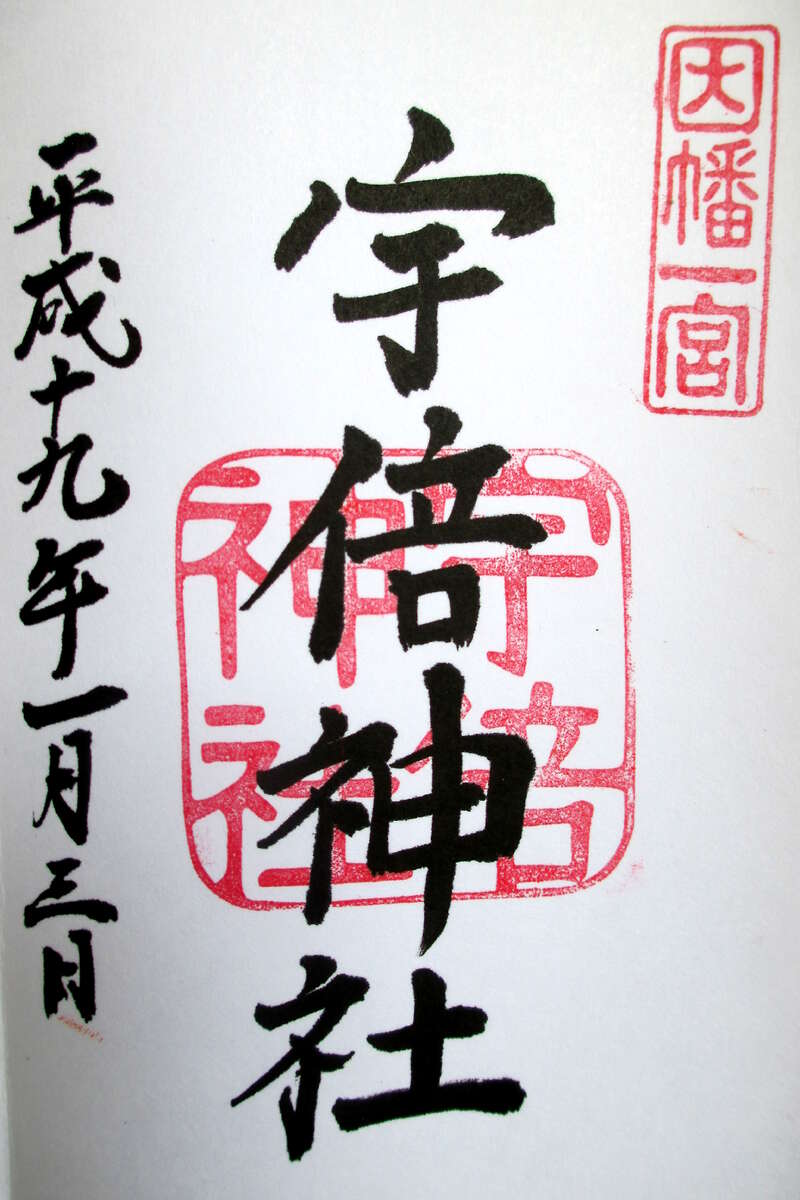 因幡一宮
宇倍神社
宇倍
神社
平成十九年一月三日